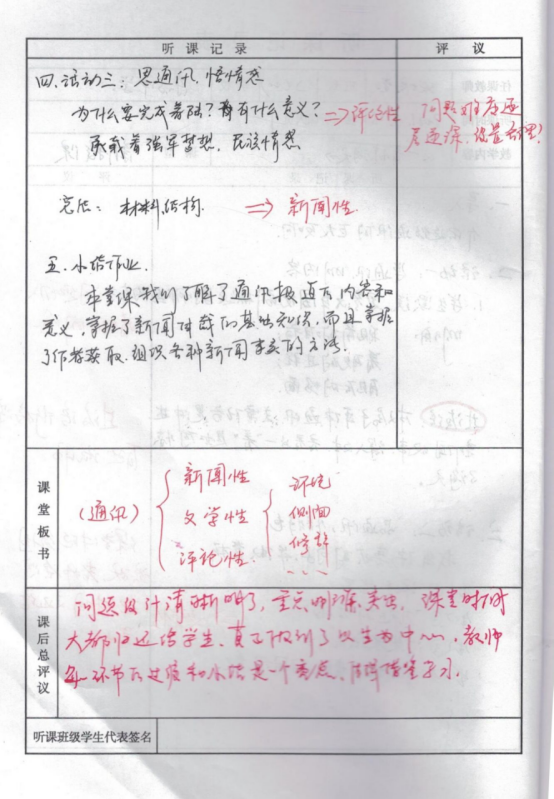 听课记录 评议
四.活动三:思通讯,悟情感
为什么要完成着陆?有什么意义? => 评论性 问题难度还
承载着强军梦想、民族情感
完后: 材料,结构. => 新闻性
五.小结作业.
本堂课我们了解了通讯报道的内容和
意义,掌握了新闻体裁的基础知识,而且掌握
了作者获取、组织各种新闻事实的方法.
课堂板书
(通讯) { 新闻性 { 环境
文学性 侧面
评论性 修辞
. . .
课后总评议
问题设计清晰明了,重点明确突出,课堂时间
大都归还给学生,真正做到了以生为中心,教师
每一环节的过渡和小结是一个亮点,值得借鉴学习.
听课班级学生代表签名